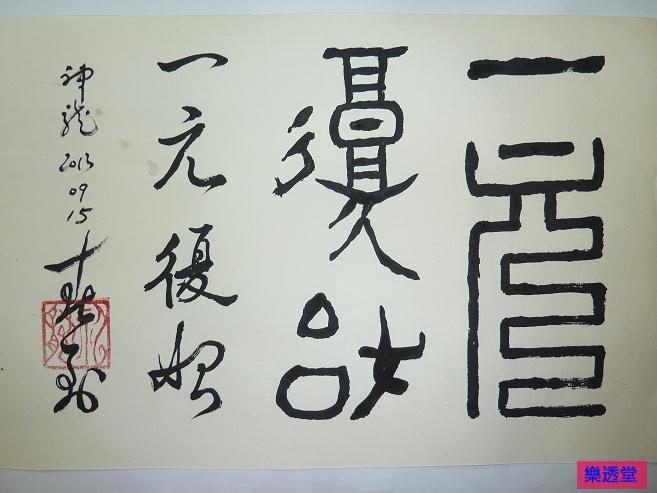 一元
復始
一元復始
神龍 2013 09 15
樂透堂